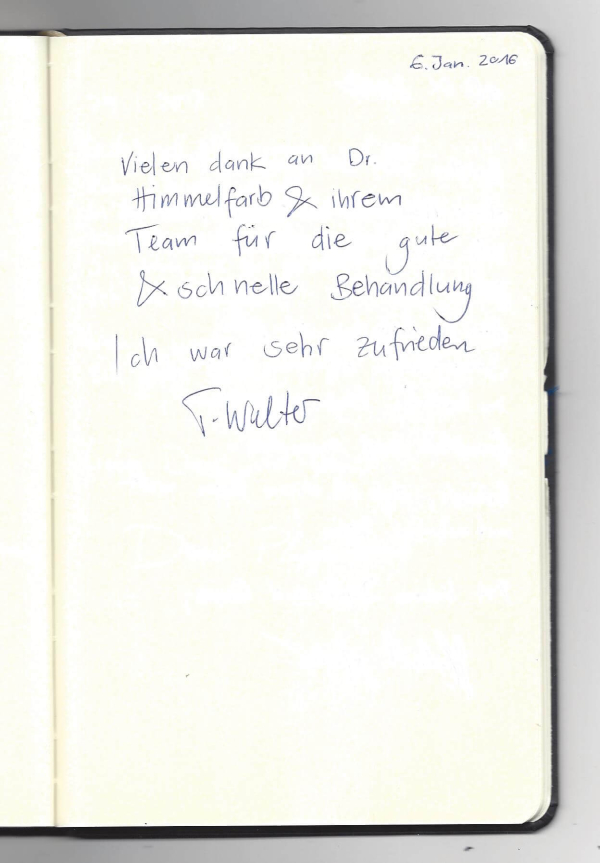 6. Jan. 2016
Vielen dank an Dr.
Himmelfarb & ihrem
Team für die gute
& schnelle Behandlung
Ich war sehr zufrieden
T. Walter